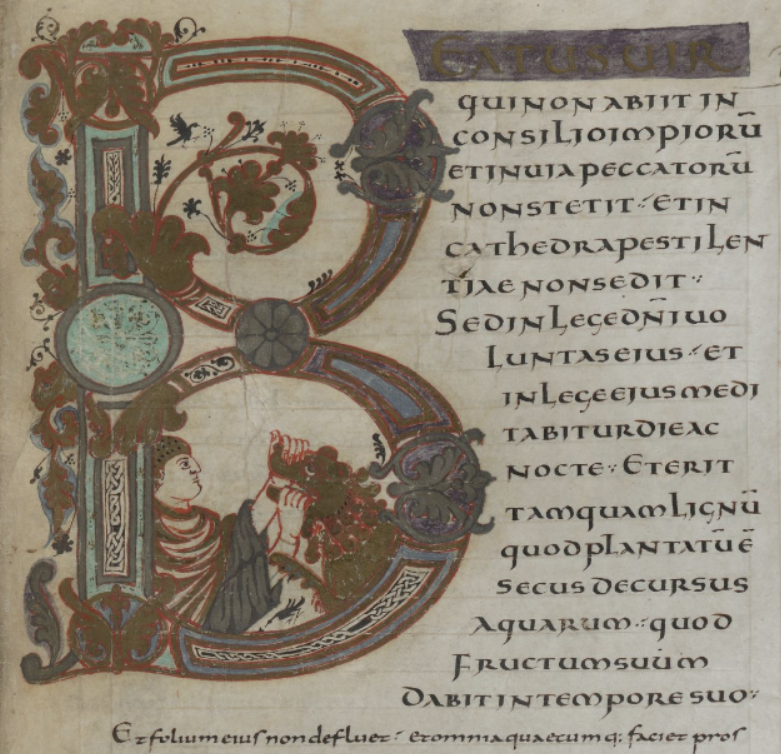 BEATUSUIR
QUINONABIIT IN
CONSILIOIMPIORŪ
ETINUIAPECCATORŪ
NONSTETIT·ETIN
CAThEDRAPESTILEN
TIAENONSEDIT·
SEDINLEGEDÑIUO
LUNTASEIUS·ET
INLEGEEIUSMEDI
TABITURDIEAC
NOCTE·ETERIT
TAMQUAMLIGNŪ
QUODPLANTATŪĒ
SECUSDECURSUS
AQUARUM·QUOD
FRUCTUMSUŪM
DABITINTEMPORESUO·
Etfoliumeiusnondefluet· etomniaquaecumq; faciet pros